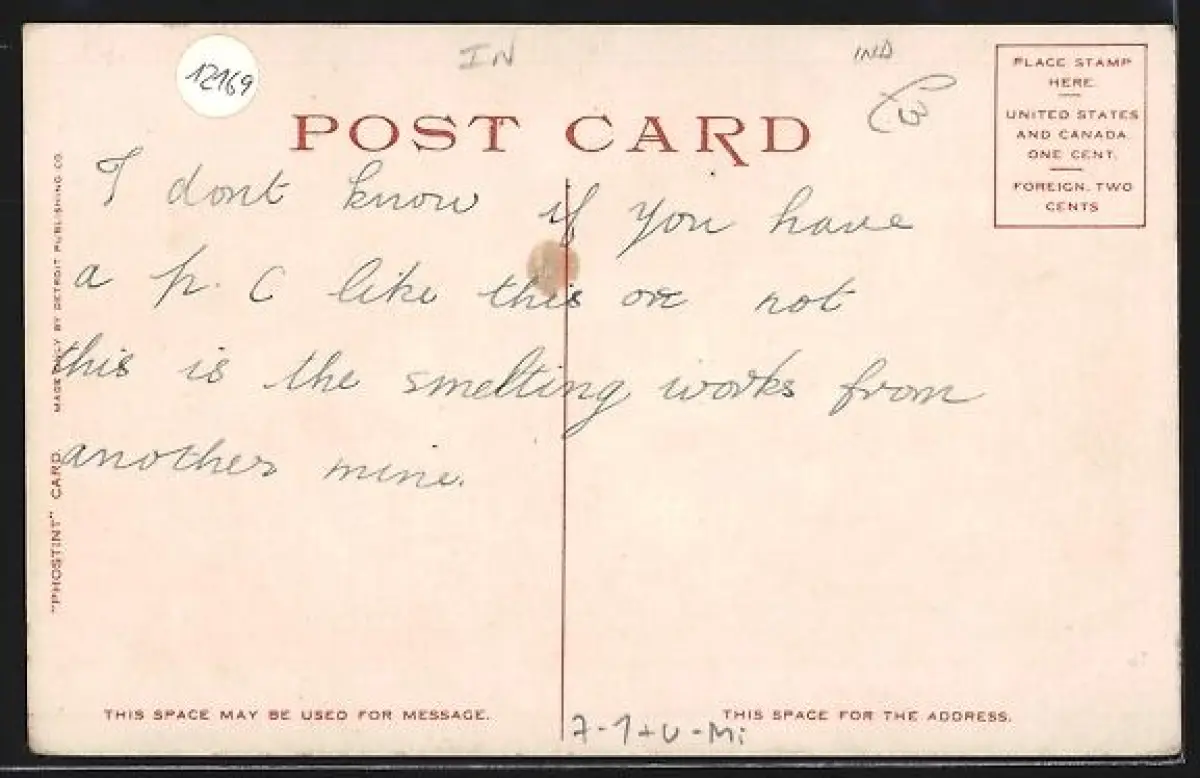 12169
IN
IND
POST CARD
PLACE STAMP
HERE.
UNITED STATES
AND CANADA.
ONE CENT.
FOREIGN, TWO
CENTS
I dont know if you have
a p. C like this or not
this is the smelting works from
another mine.
"PHOSTINT" CARD MADE ONLY BY DETROIT PUBLISHING CO.
THIS SPACE MAY BE USED FOR MESSAGE.
THIS SPACE FOR THE ADDRESS.